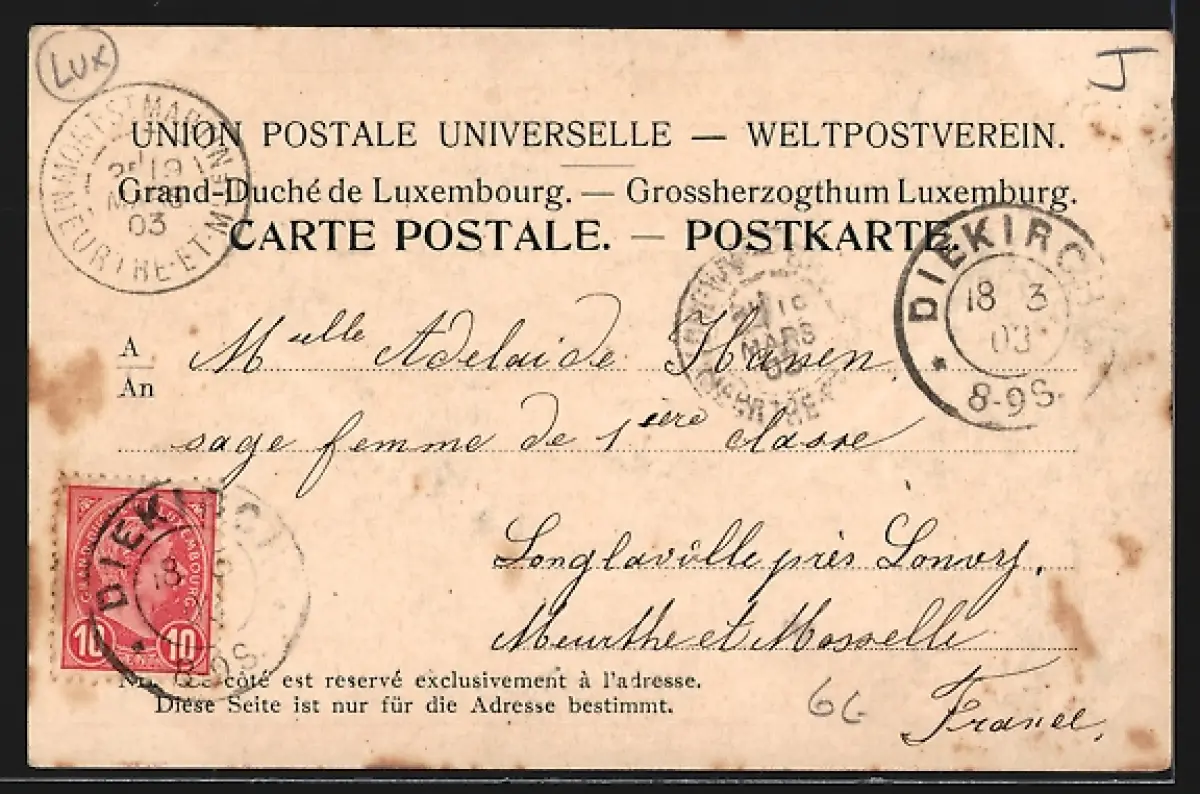 LUX
J
MONT ST MARTIN
MEURTHE-ET-M
19
03
UNION POSTALE UNIVERSELLE — WELTPOSTVEREIN.
Grand-Duché de Luxembourg. — Grossherzogthum Luxemburg.
CARTE POSTALE. — POSTKARTE.
DIEKIRCH
18 3
03
8-9S.
MARS
A
An
Melle Adelaide Hansen,
sage femme de 1ière classe
Longlaville près Lonwy,
Meurthe et Mosselle
France,
GRAND-DUCHÉ LUXEMBOURG
10 10
DIEKIRCH
18
8-9S.
côté est reservé exclusivement à l'adresse.
Diese Seite ist nur für die Adresse bestimmt.
66